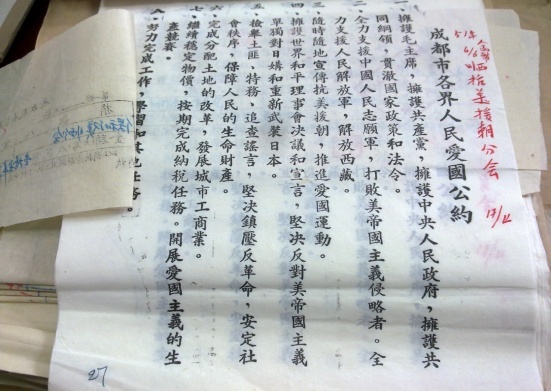 抗美援朝分會
成都市各界人民愛國公約
一、擁護毛主席,擁護共產黨,擁護中央人民政府,擁護共
同綱領,貫澈國家政策和法令。
二、全力支援中國人民志願軍,打敗美帝國主義侵略者。全
力支援人民解放軍,解放西藏。
三、隨時隨地宣傳抗美援朝,推進愛國運動。
四、擁護世界和平理事會决議和宣言,堅决反對美帝國主義
單獨對日媾和重新武裝日本。
五、檢舉土匪、特務,追查謠言,堅决鎮壓反革命,安定社
會秩序,保障人民的生命財產。
六、完成分配土地的改革,發展城市工商業。
七、繼續穩定物價,按期完成納稅任務。開展愛國主義的生
產競賽。
八、努力完成工作,學習和其他任務。
27